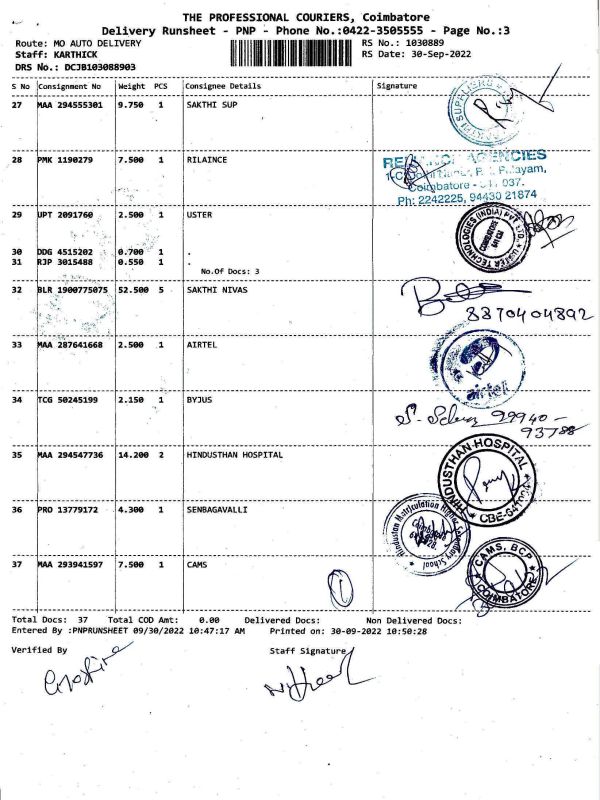 THE PROFESSIONAL COURIERS, Coimbatore
Delivery Runsheet - PNP - Phone No.:0422-3505555 - Page No.:3
Route: MO AUTO DELIVERY RS No.: 1030889
Staff: KARTHICK RS Date: 30-Sep-2022
DRS No.: DCJB103088903
S No Consignment No Weight PCS Consignee Details Signature
27 MAA 294555301 9.750 1 SAKTHI SUP
28 PMK 1190279 7.500 1 RILAINCE
AGENCIES
Coimbatore
037.
Ph: 2242225, 94430 21874
29 UPT 2091760 2.500 1 USTER
USTER TECHNOLOGIES (INDIA) PVT LTD.
COIMBATORE
30 DDG 4515202 0.700 1 .
31 RJP 3015488 0.550 1 .
No.Of Docs: 3
32 BLR 1900775075 52.500 5 SAKTHI NIVAS
8870404892
33 MAA 287641668 2.500 1 AIRTEL
airtel
34 TCG 50245199 2.150 1 BYJUS
99940-
93788
35 MAA 294547736 14.200 2 HINDUSTHAN HOSPITAL
HINDUSTHAN HOSPITAL
36 PRO 13779172 4.300 1 SENBAGAVALLI
Hindustan Matriculation Higher Secondary School
37 MAA 293941597 7.500 1 CAMS
CAMS, BCP
COIMBATORE
Total Docs: 37 Total COD Amt: 0.00 Delivered Docs: Non Delivered Docs:
Entered By :PNPRUNSHEET 09/30/2022 10:47:17 AM Printed on: 30-09-2022 10:50:28
Verified By Staff Signature